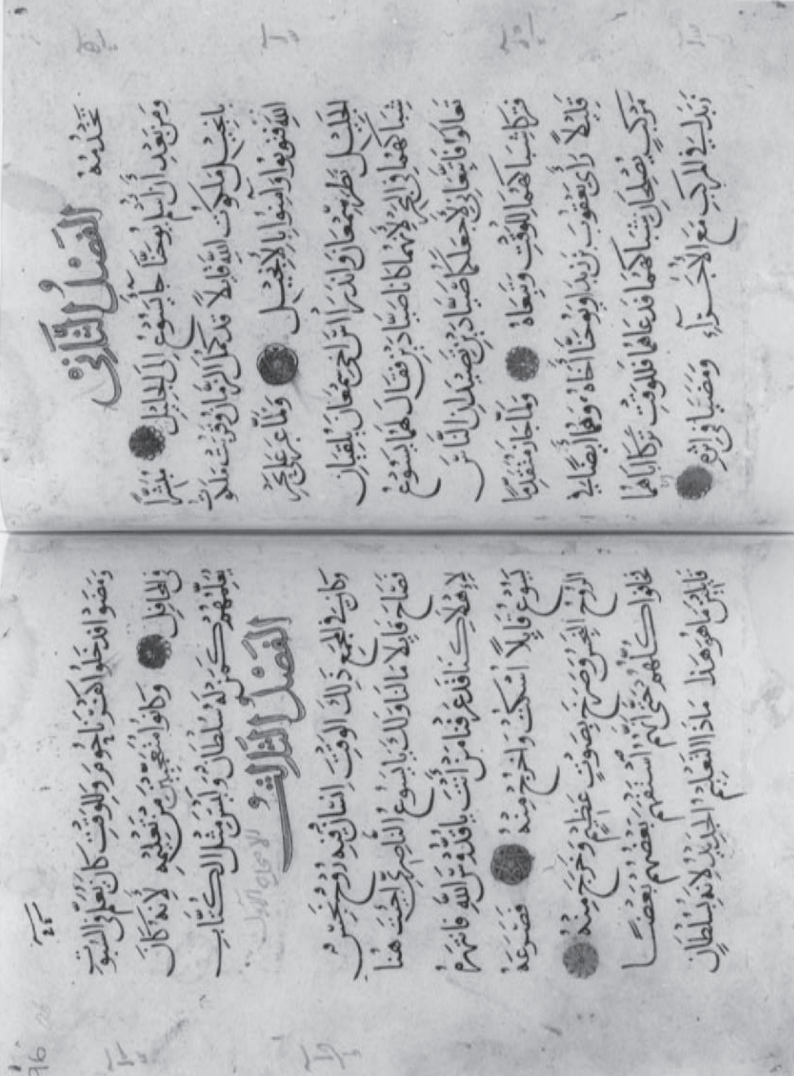 تخدمه
الفصل الثاني
ومن بعد أن أسلم يوحنا جآ يسوع إلى الجليل مبشرا
بإنجيل ملكوت الله قايلا قد كمل الزمان وقربت ملكوت
الله فتوبوا وآمنوا بالإنجيل ولما عبر على بحر
الجليل نظر سمعان وأندراوس أخي سمعان يلقيان
شباكهما في البحر لأنهما كانا صيادين فقال لهما يسوع
تعالوا فاتبعاني لأجعلكما صيادين تصيدان الناس
فتركا شباكهما للوقت وتبعاه ولما جاز متقدما
قليلا رأى يعقوب بن زبدا ويوحنا أخاه وهما أيضا في
مركب يصلحان شباكهما فدعاهما فللوقت تركا أباهما
زبدا في المركب مع الأجرآء ومضيا في إثره
ومضوا فدخلوا كفرناحوم وللوقت كان يعلم في السبوت
في المحافل وكانوا متعجبين من تعليمه لأنه كان
يعلمهم كمن له سلطان وليس مثل الكتاب
الفصل الثالث
وكان في المجمع ذلك الوقت إنسان فيه روح نجس
فصاح قايلا ما لنا ولك يا يسوع الناصري أجيت هنا
لإهلاكنا قد عرفنا من أنت يا قدوس الله فانتهره
يسوع قايلا اسكت واخرج منه فصرعه
الروح النجس وصرخ بصوت عظيم وخرج منه
فخافوا كلهم حتى أنهم استفهم بعضهم بعضا
قايلين ما هو هذا ماذا التعليم الجديد لأنه بسلطان
96